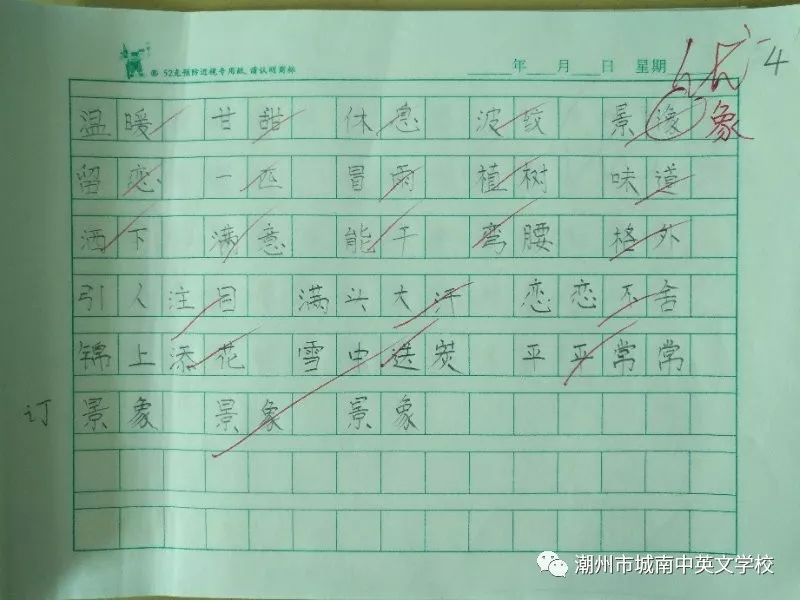 52克预防近视专用纸,请认明商标 年 月 日 星期
4
温暖 甘甜 休息 波纹 景 象
留恋 一匹 冒雨 植树 味道
洒下 满意 能干 弯腰 格外
引人注目 满头大汗 恋恋不舍
锦上添花 雪中送炭 平平常常
订 景象 景象 景象
潮州市城南中英文学校